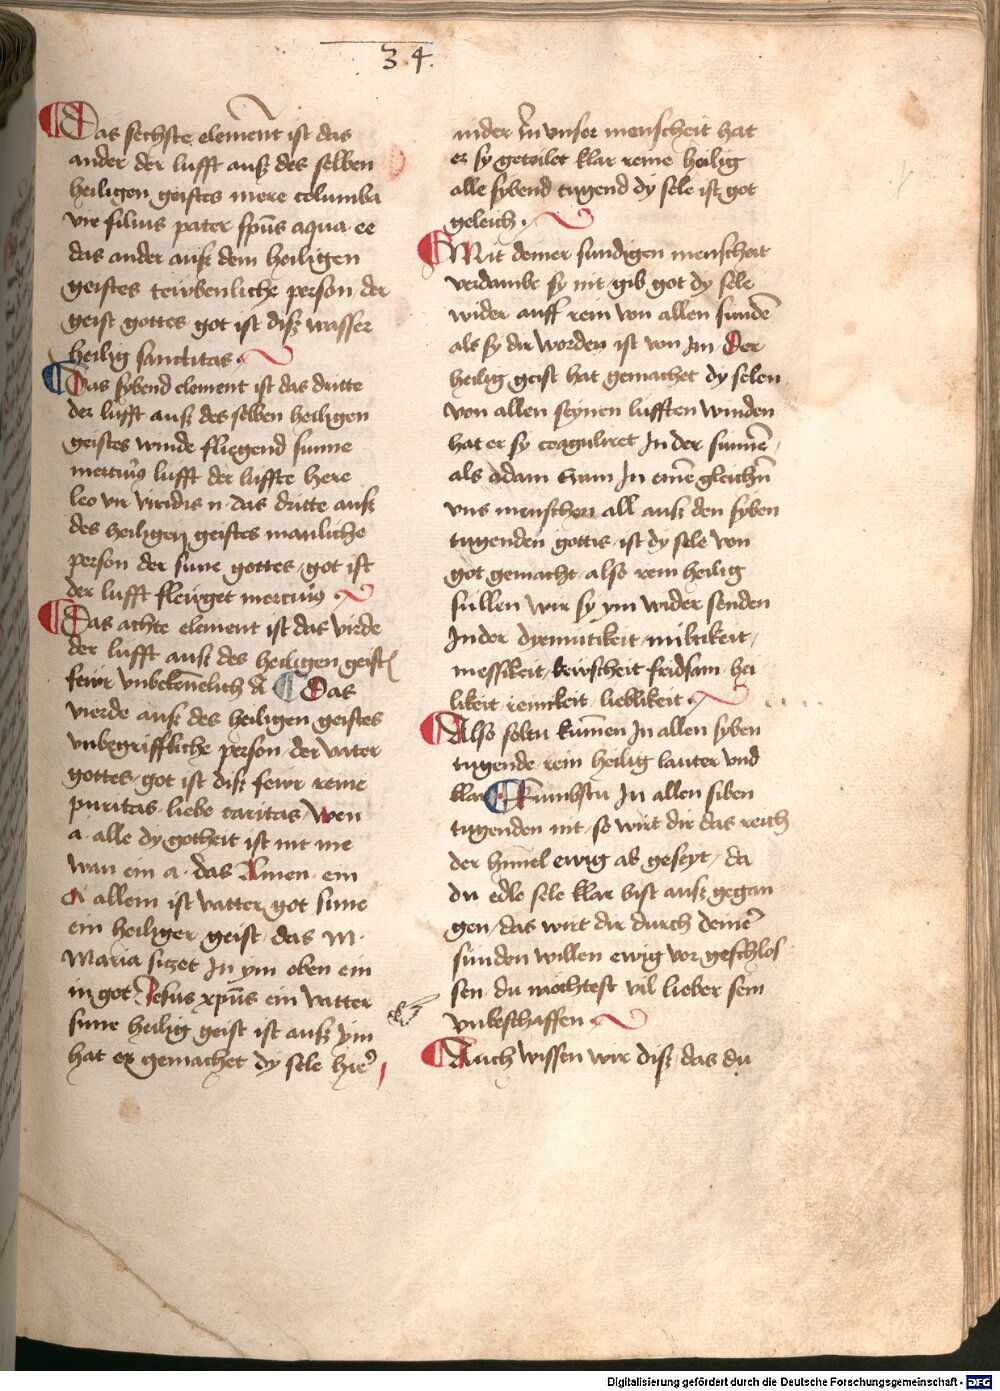 34.
Das sechste element ist das
ander der lufft auß des selben
heiligen geistes mere columba
vir filius pater spūs aqua ee
das ander auß dem heiligen
geistes person der
geist gottes got ist diß wasser
heilig sanctitas
Das sybend element ist das dritte
der lufft auß des selben heiligen
geistes winde fliegend sunne
lufft der luffte here
leo vir viridis n das dritte auß
des heiligen geistes manliche
person der sune gottes got ist
der lufft fleuget
Das achte element ist das virde
der lufft auß des heiligen geist
fewr vnbekēnelich Das
vierde auß des heiligen geistes
vnbegriffliche person der vater
gottes got ist diß fewr reine
puritas liebe caritas Wen
a alle dy gotheit ist nit me
wan ein a das Amen ein
A allein ist vatter got sune
ein heiliger geist das M
Maria siczet In ym oben ein
in got Jesus xpūs ein vatter
sune heilig geist ist auß ym
hat er gemachet dy sele
ander In vnser menscheit hat
er sy geteilet klar reine heilig
alle sybend tugend dy sele ist got
geleich
Mit deiner sundigen menscheit
verdambe sy nit gib got dy sele
wider auff rein von allen sundē
als sy dir worden ist von Im Der
heilig geist hat gemachet dy selen
von allen seynen lufften winden
hat er sy coaguliret In der sunnē
als adam In einē gleichn̄
vns menschen all auß den syben
tugenden gottis ist dy sele von
got gemacht also rein heilig
sullen wir sy ym wider senden
In der dyemutikeit miltikeit
messikeit kewscheit fridsam hei
likeit reinikeit lieblikeit
Also soltu kumēn In allen syben
tugende rein heilig lauter vnd
klar kumbstu In allen siben
tugenden nit so wirt dir das reich
der himel ewig ab geseyt da
du edle sele klar bist auß gegan
gen das wirt dir durch deiner
sunden willen ewig vor geschlos
sen du mochtest vil lieber sein
vnbeschaffen
Auch wissen wir diß das du
Digitalisierung gefördert durch die Deutsche Forschungsgemeinschaft - DFG